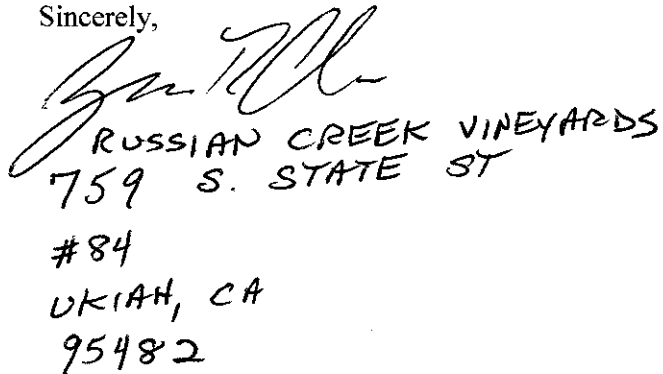 Sincerely,
RUSSIAN CREEK VINEYARDS
759 S. STATE ST
#84
UKIAH, CA
95482